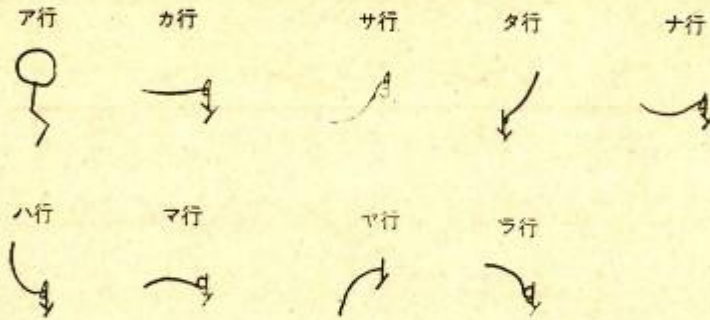 ア行 カ行 サ行 タ行 ナ行
ハ行 マ行 ヤ行 ラ行